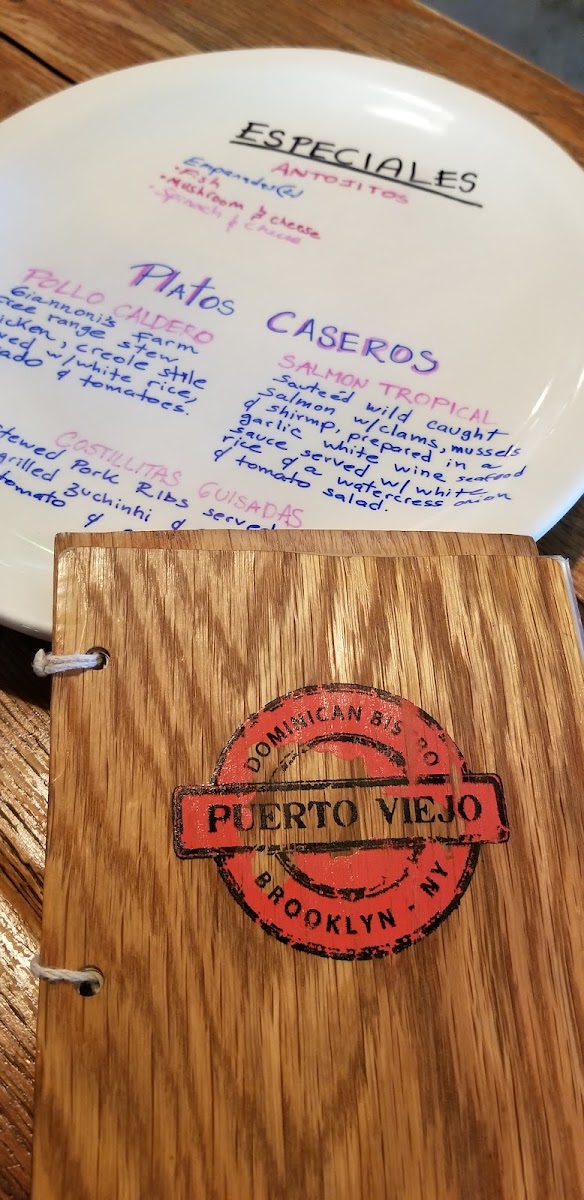 ESPECIALES
ANTOJITOS
Empanadas
• Fish
• Mushroom & cheese
• Spinach & cheese
Platos CASEROS
POLLO CALDERO
Giannoni's Farm
free range stew
chicken, creole style
w/white rice,
& tomatoes.
SALMON TROPICAL
Sauteéd wild caught
Salmon w/clams, mussels
& shirmp, prepared in a
garlic white wine seafood
sauce served w/ white
rice & a watercress onion
& tomato salad.
COSTILLITAS GUISADAS
Stewed Pork Ribs served
grilled Zuchinhi &
tomato &
DOMINICAN BISTRO
PUERTO VIEJO
BROOKLYN - NY